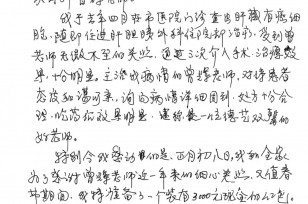 我于去年四月在市医院门诊查出肝脏有癌细
胞,随即住进肝胆胰外科住院部治疗,受到曾
老师无微不至的关照,通过三次介入手术,治疗效
果十分明显。主治我病情的曾老师,对待患者
态度和蔼可亲,询问病情详细周到,处方十分合
理,给药后效果明显,堪称是一位德艺双馨的
好老师。
特别令我感动的是,正月初八日,我和全家
为了感谢曾老师近一年来的细心照料,又值春
节期间,我特准备了一个装有3000元现金的红包。